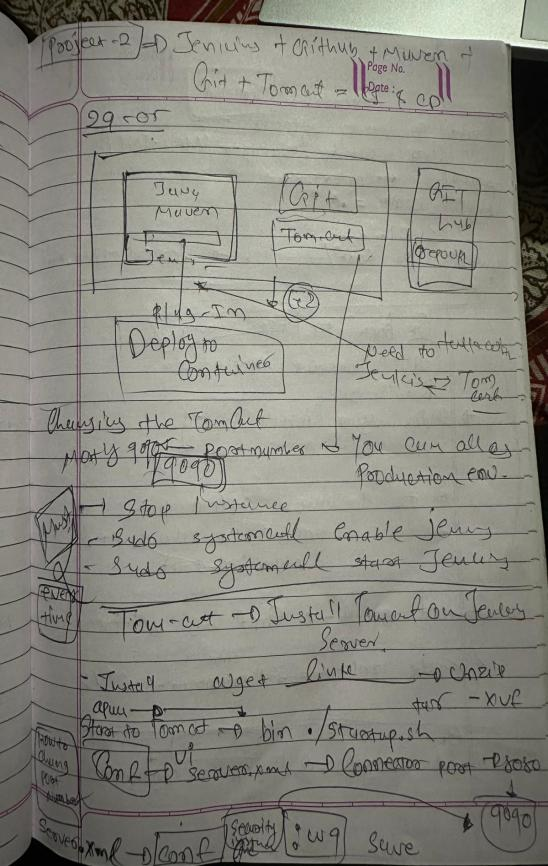 Project-2 => Jenkins + Github + Maven +
Git + Tomcat = CI & CD
Page No.
Date:
29-05
Java
Maven
Jenkins
Git
Tomcat
GIT
hub
Plug-In
Deploy to
Container
Need to
Jenkins => Tom
cat
Changing the TomCat
port number → You can
9090
Production env.
Must
→ Stop Instance
- Sudo systemctl enable jenkins
- Sudo systemctl start Jenkins
every
time
Tom-cat → Install Tomcat on Jenkins
Server.
- Install wget link → Unzip
tar -xvf
Start to Tomcat → bin ./startup.sh
How to
Chang
port
number
Conf → Vi server.xml → Connector port → 8080
9090
Server.xml → conf
Security
:wq Save